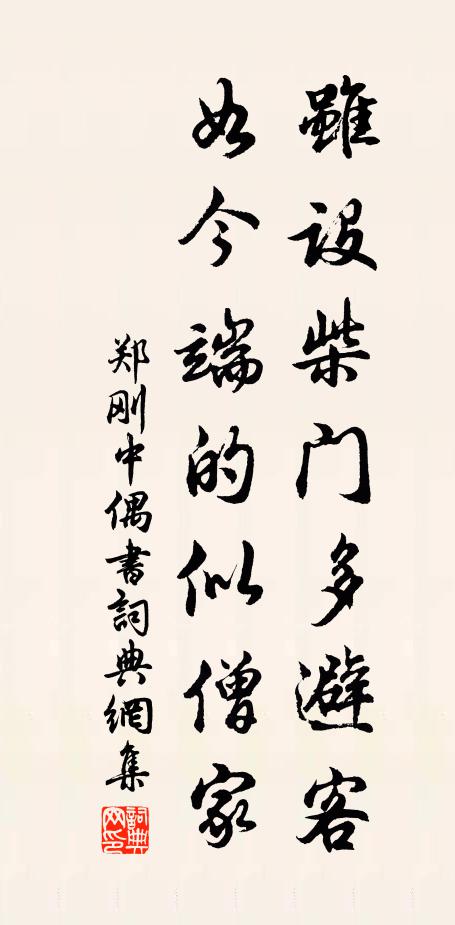 雖設柴门多避客
如今端的似僧家
郑刚中偶書詞典網集
詞典网印